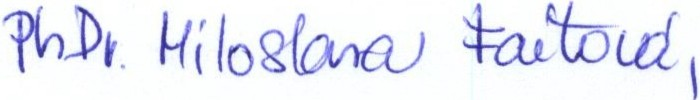 PhDr. Miloslava Faitová,